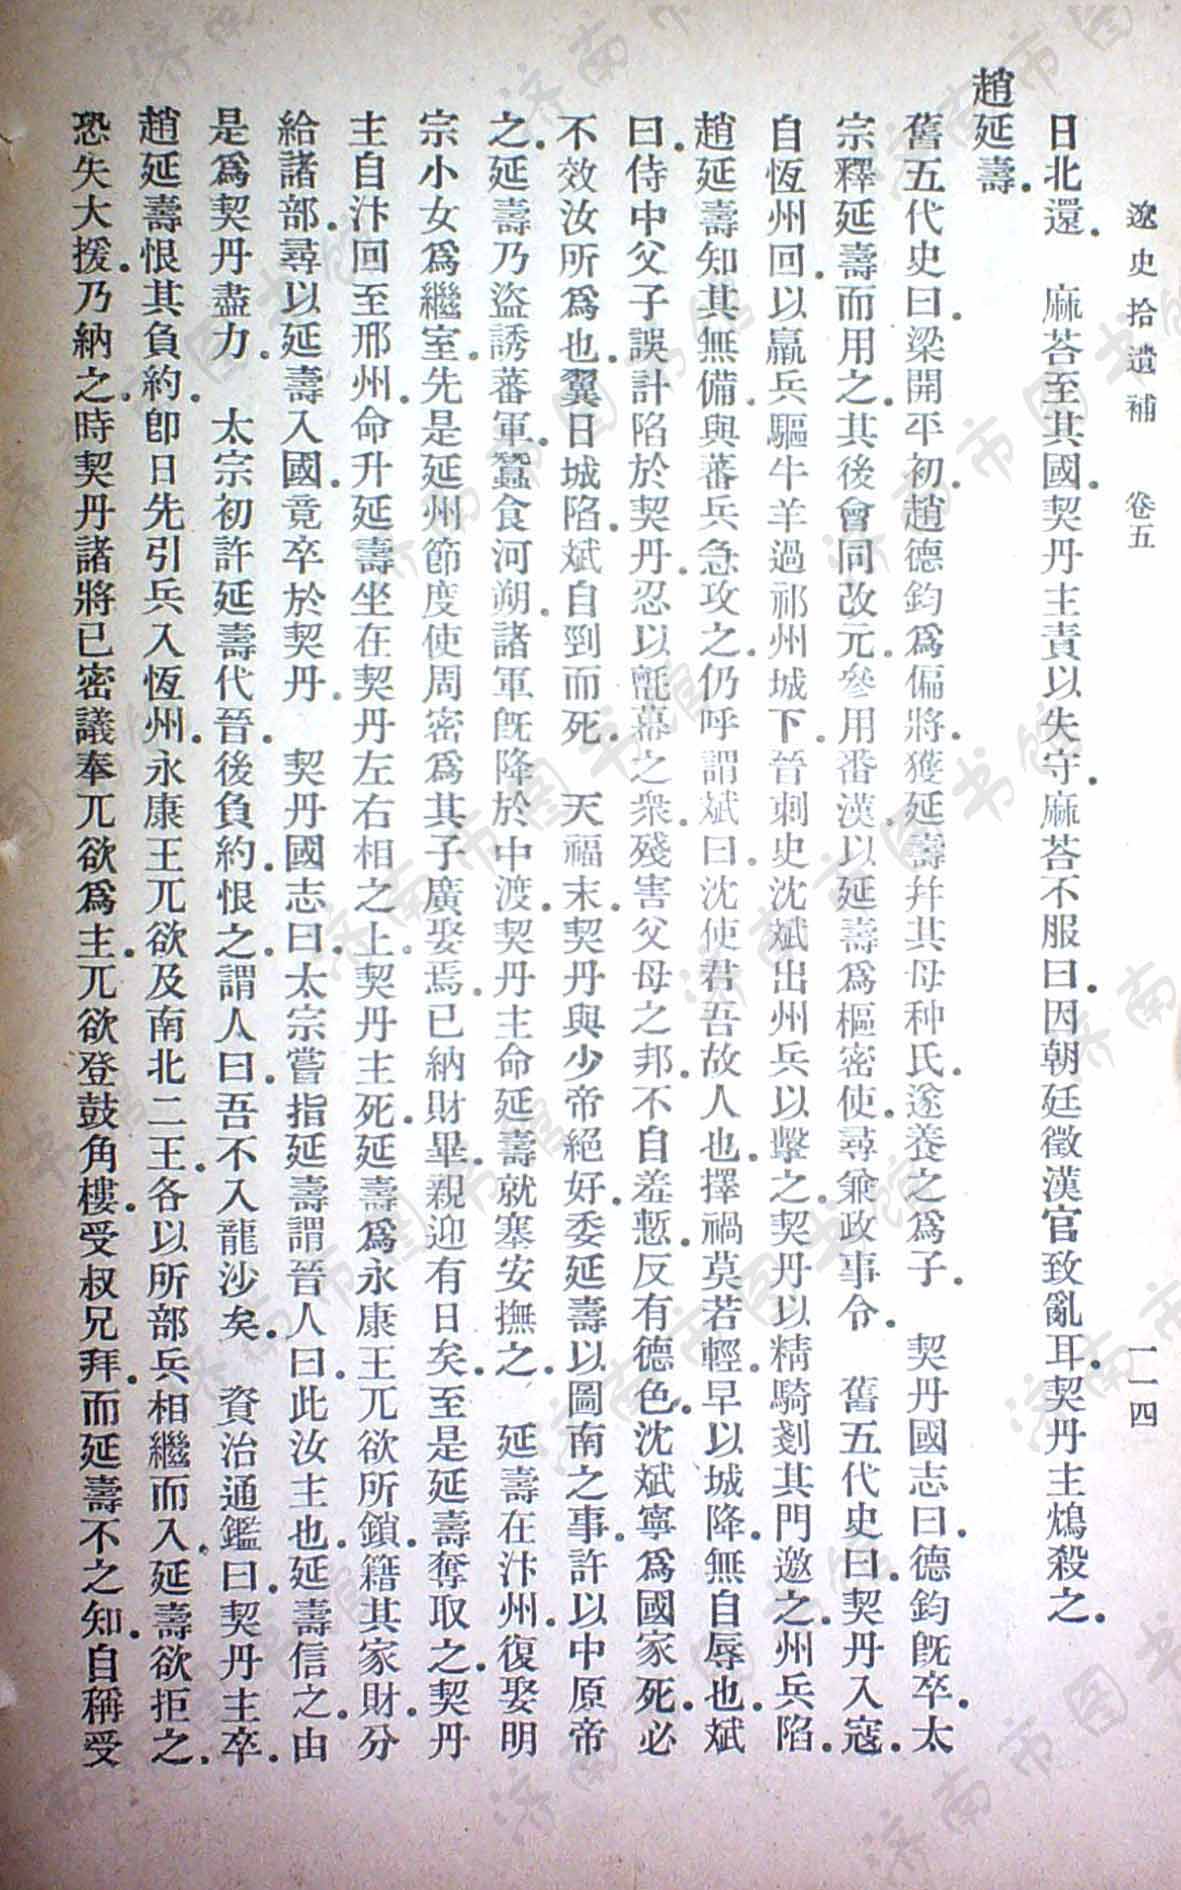 遼史拾遺補　卷五　一一四
日北還。　麻荅至其國。契丹主責以失守。麻荅不服曰。因朝廷徵漢官致亂耳。契丹主鴆殺之。
趙延壽。
舊五代史曰。梁開平初。趙德鈞爲偏將。獲延壽幷其母种氏。遂養之爲子。　契丹國志曰。德鈞旣卒。太
宗釋延壽而用之。其後會同改元。參用番漢。以延壽爲樞密使。尋兼政事令。　舊五代史曰。契丹入寇。
自恆州回。以羸兵驅牛羊過祁州城下。晉刺史沈斌出州兵以擊之。契丹以精騎剗其門邀之。州兵陷。
趙延壽知其無備。與蕃兵急攻之。仍呼謂斌曰。沈使君吾故人也。擇禍莫若輕。早以城降。無自辱也。斌
曰。侍中父子誤計陷於契丹。忍以氈幕之衆。殘害父母之邦。不自羞慙。反有德色。沈斌寧爲國家死。必
不效汝所爲也。翼日城陷。斌自剄而死。　天福末。契丹與少帝絕好。委延壽以圖南之事。許以中原帝
之。延壽乃盜誘蕃軍。蠶食河朔。諸軍旣降於中渡。契丹主命延壽就塞安撫之。　延壽在汴州。復娶明
宗小女爲繼室。先是延州節度使周密爲其子廣娶焉。已納財畢。親迎有日矣。至是延壽奪取之。契丹
主自汴回至邢州。命升延壽坐在契丹左右相之上。契丹主死。延壽爲永康王兀欲所鎖。籍其家財。分
給諸部。尋以延壽入國。竟卒於契丹。　契丹國志曰。太宗嘗指延壽謂晉人曰。此汝主也。延壽信之。由
是爲契丹盡力。　太宗初許延壽代晉。後負約。恨之。謂人曰。吾不入龍沙矣。　資治通鑑曰。契丹主卒。
趙延壽恨其負約。卽日先引兵入恆州。永康王兀欲及南北二王。各以所部兵相繼而入。延壽欲拒之。
恐失大援。乃納之。時契丹諸將已密議奉兀欲爲主。兀欲登鼓角樓。受叔兄拜。而延壽不之知。自稱受